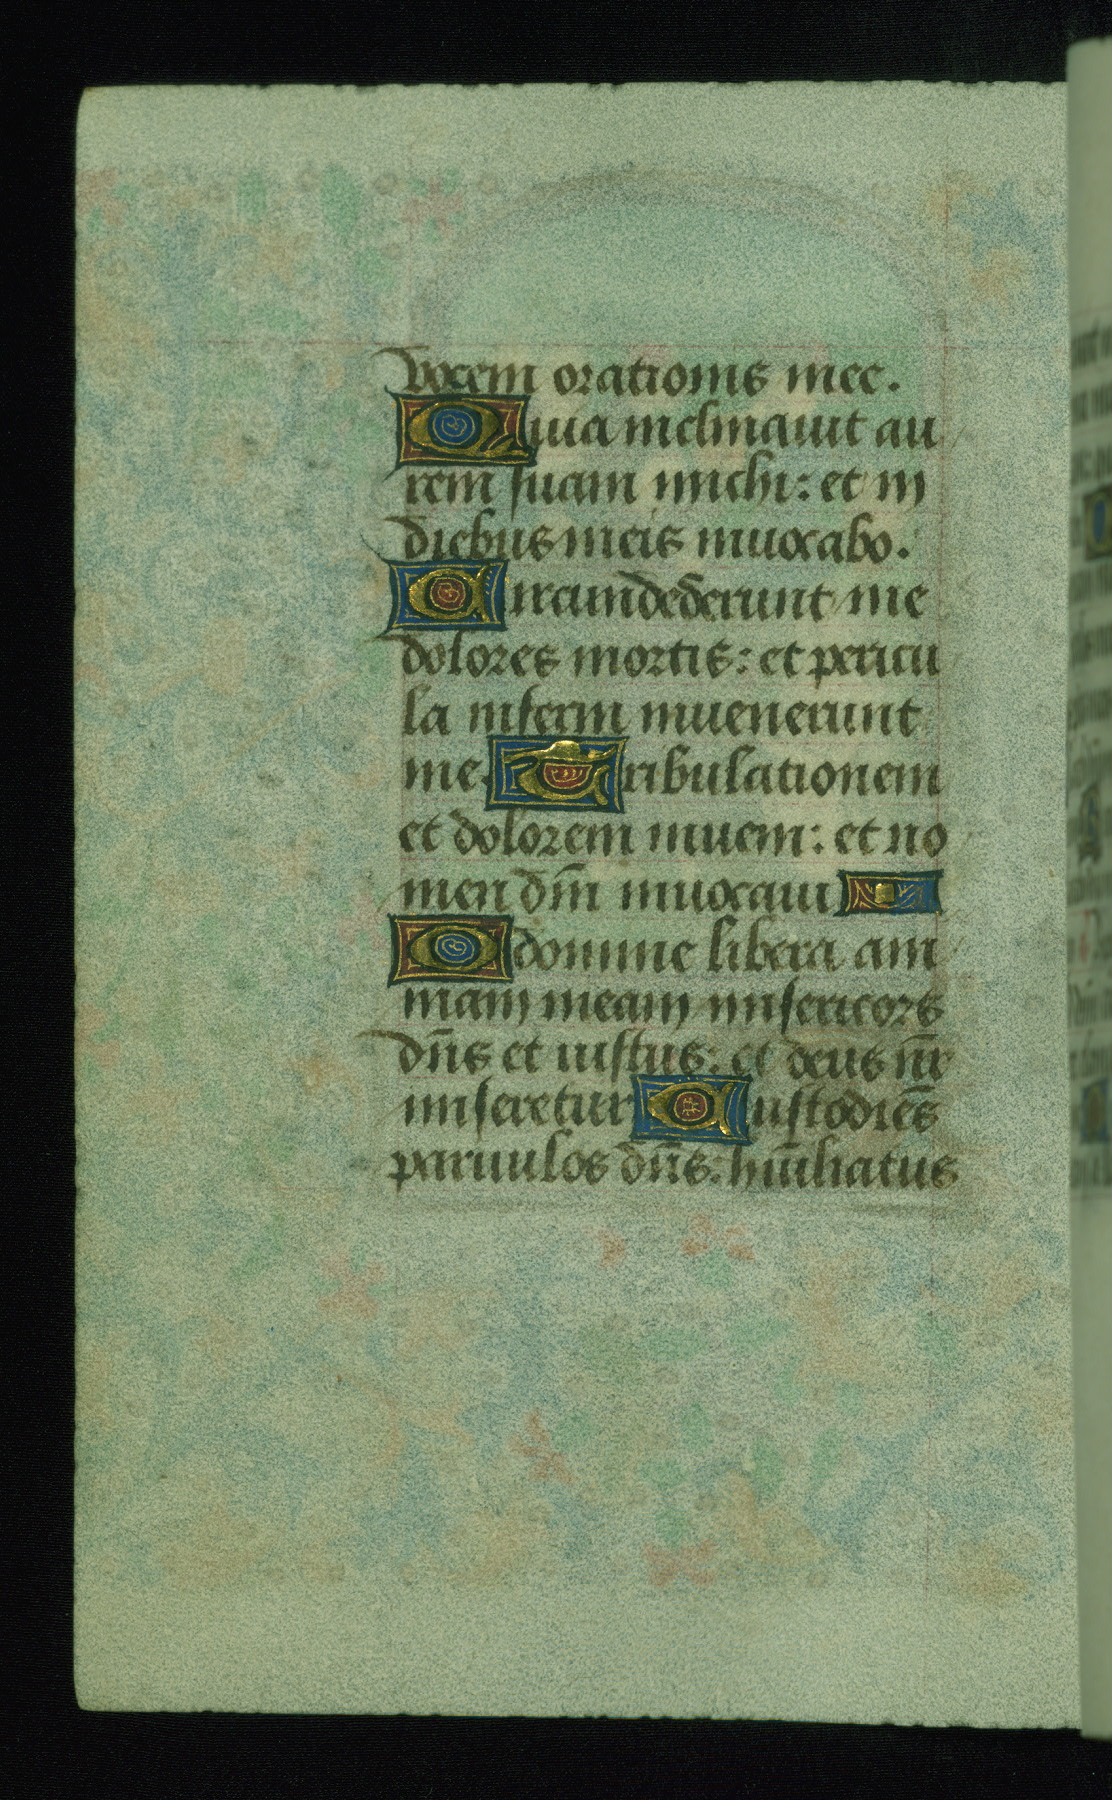 vocem orationis mee.
Quia inclinauit au
rem suam michi: et in
diebus meis inuocabo.
Circundederunt me
dolores mortis: et pericu
la inferni inuenerunt
me. Tribulationem
et dolorem inueni: et no
men dñi inuocaui
O domine libera ani
mam meam misericors
dñs et iustus: et deus nr̄
miseretur Custodiēs
paruulos dñs: humiliatus